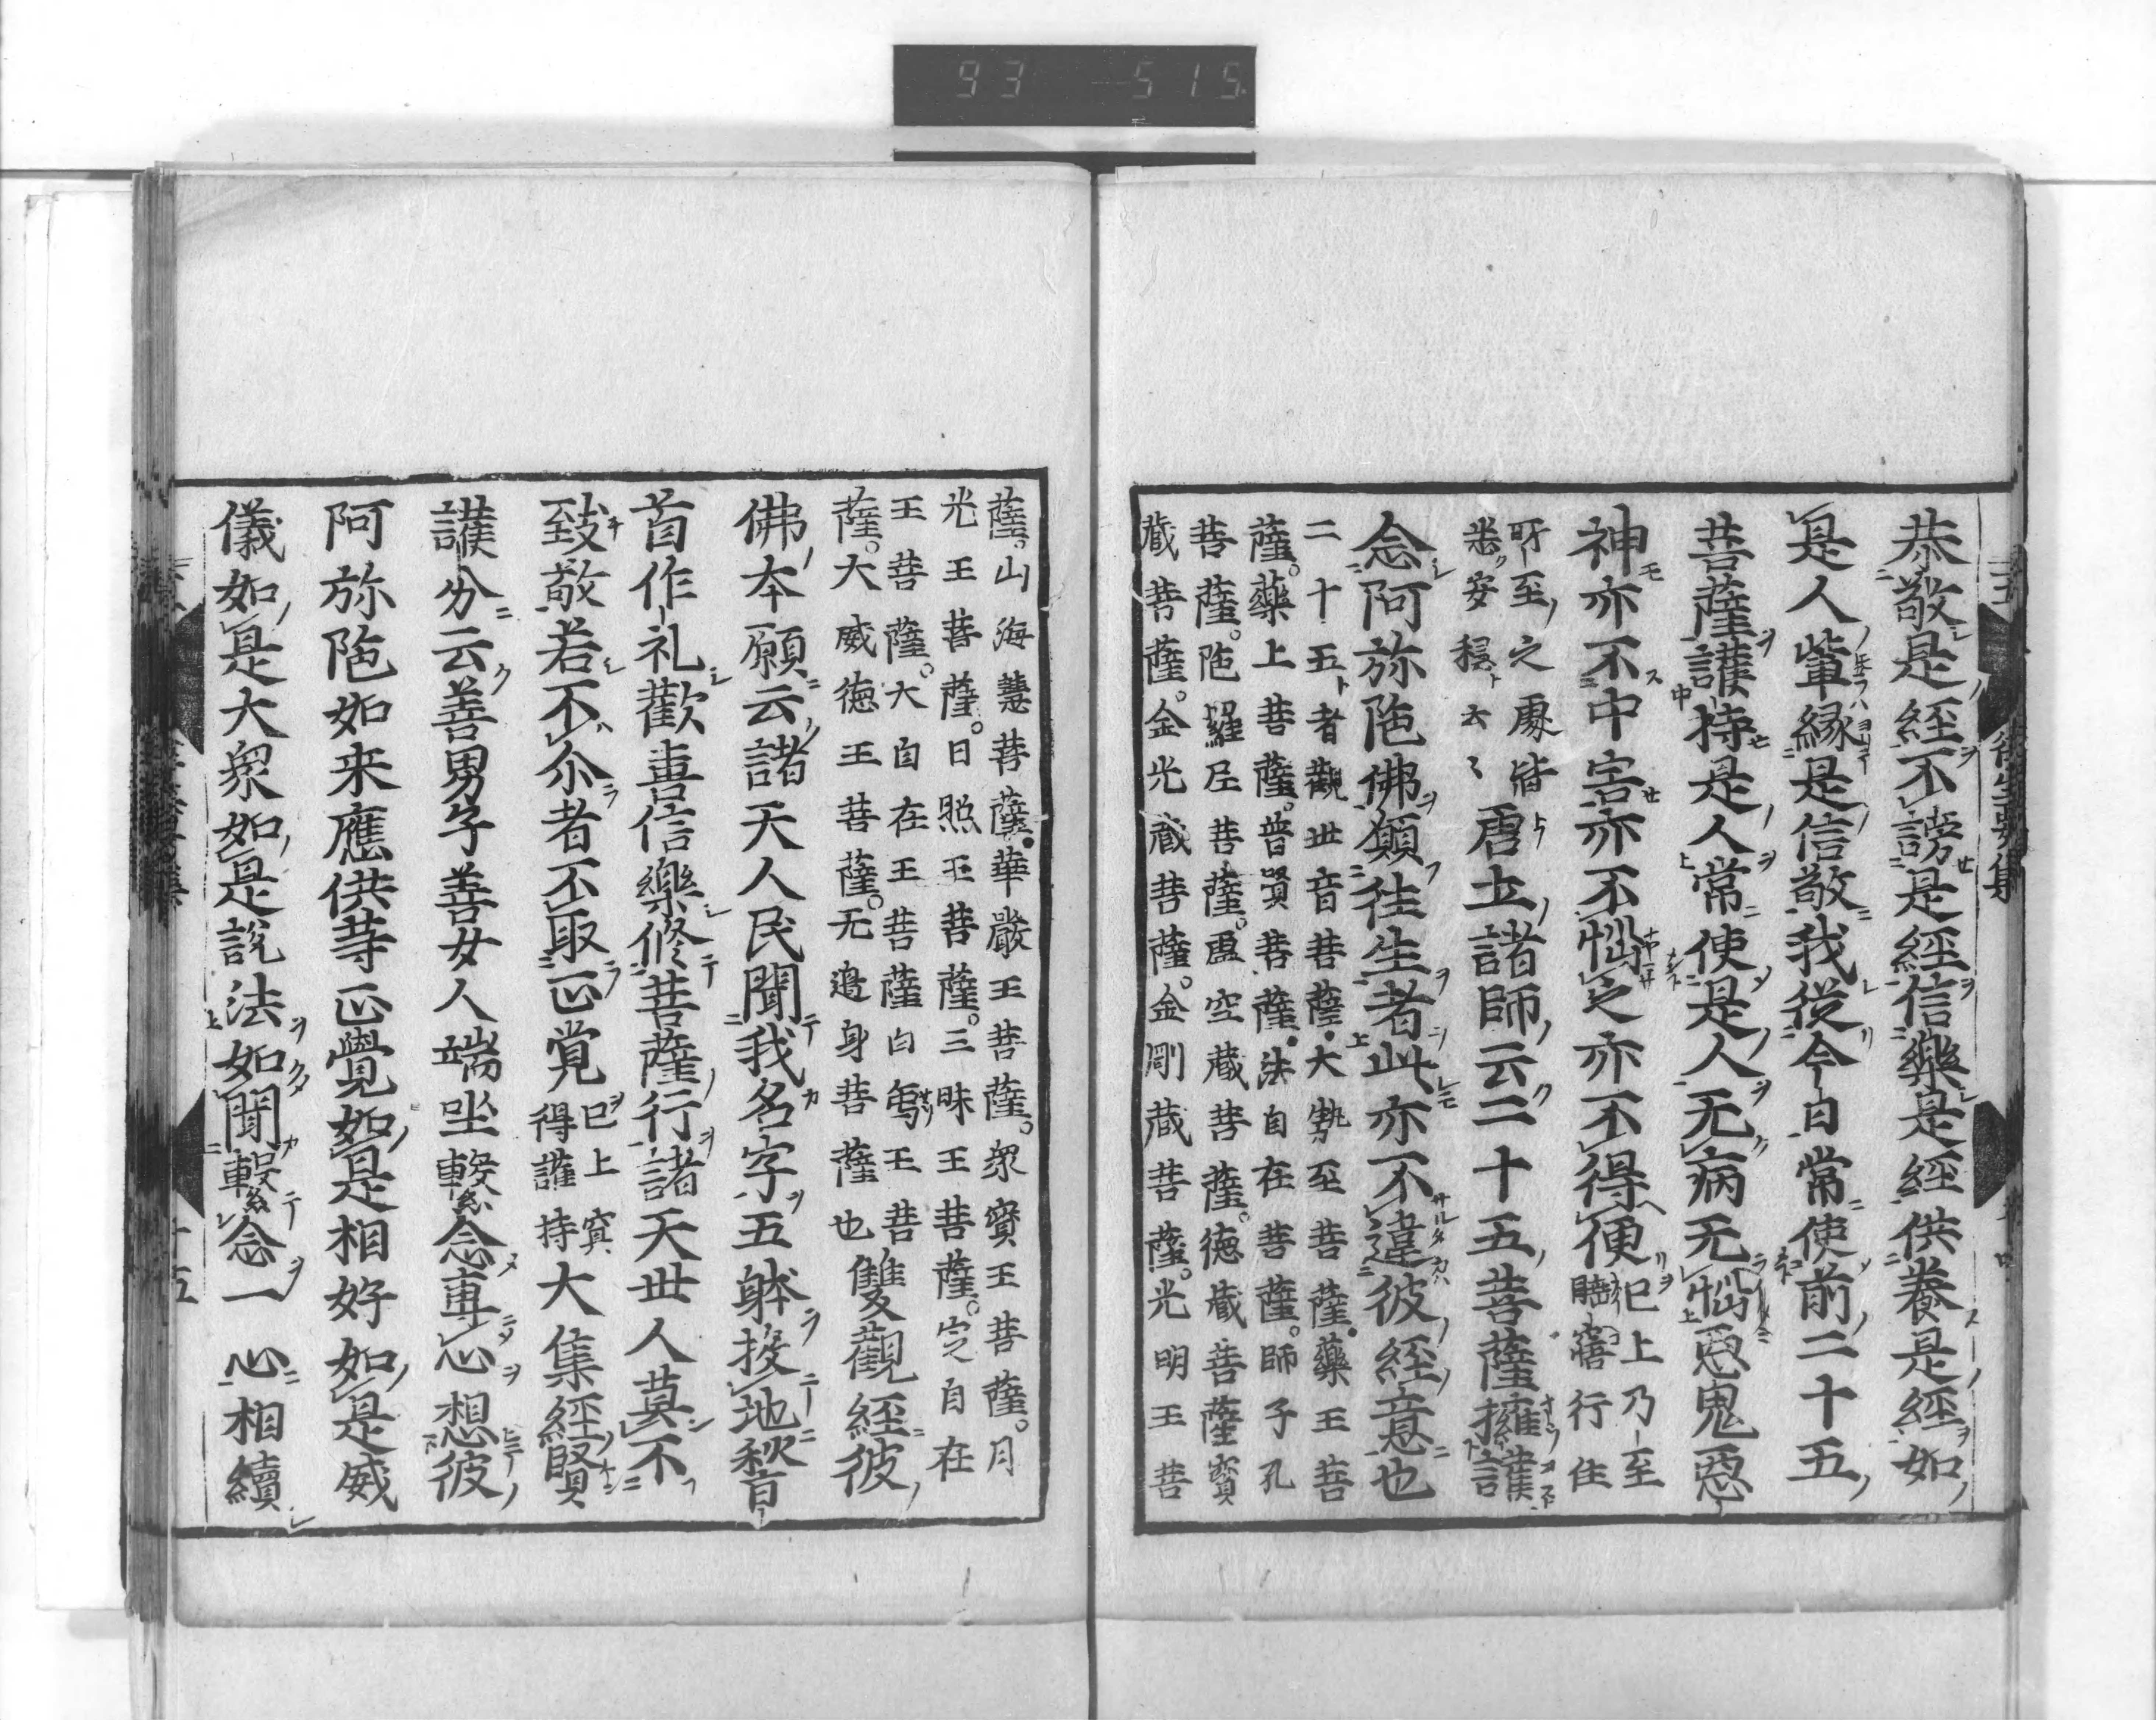 93 515
恭敬是經不謗是經信樂是經供養是經如
是人輩縁是信敬我従今日常使前二十五
菩薩護持是人常使是人无病无惱惡鬼惡
神亦不中害亦不惱之亦不得便已上乃至
睡寤行住
所至之處皆
悉安穏云々
唐土諸師云二十五菩薩擁護
念阿弥陁佛願徃生者此亦不違彼經意也
二十五者觀世音菩薩大勢至菩薩藥王菩
薩藥上菩薩普賢菩薩法自在菩薩師子孔
菩薩陁羅尼菩薩虚空蔵菩薩徳蔵菩薩寳
蔵菩薩金光蔵菩薩金剛蔵菩薩光明王菩
薩山海慧菩薩華嚴王菩薩衆寳王菩薩月
光王菩薩日照王菩薩三昧王菩薩定自在
王菩薩大自在王菩薩白象王菩
薩大威徳王菩薩无邉身菩薩也
雙觀經彼
佛本願云諸天人民聞我名字五躰投地稽
首作礼歡喜信樂修菩薩行諸天世人莫不
致敬若不尒者不取正覚
已上冥
得護持
大集經賢
護分云善男子善女人端坐繫念專心想彼
阿弥陁如来應供等正覺如是相好如是威
儀如是大衆如是說法如聞繫念一心相續